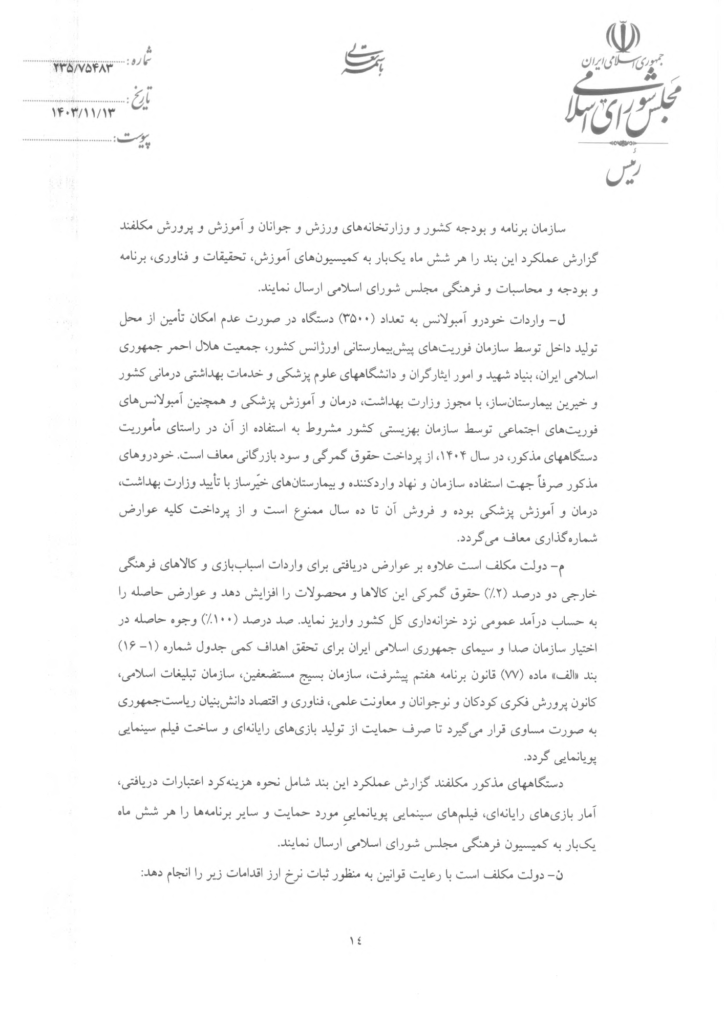 جمهوری اسلامی ایران
مجلس شورای اسلامی
رئیس
باسمه تعالی
شماره: ۲۳۵/۷۵۴۸۳
تاریخ: ۱۴۰۳/۱۱/۱۳
پیوست:
سازمان برنامه و بودجه کشور و وزارتخانه‌های ورزش و جوانان و آموزش و پرورش مکلفند
گزارش عملکرد این بند را هر شش ماه یک‌بار به کمیسیون‌های آموزش، تحقیقات و فناوری، برنامه
و بودجه و محاسبات و فرهنگی مجلس شورای اسلامی ارسال نمایند.
ل- واردات خودرو آمبولانس به تعداد (۳۵۰۰) دستگاه در صورت عدم امکان تأمین از محل
تولید داخل توسط سازمان فوریت‌های پیش‌بیمارستانی اورژانس کشور، جمعیت هلال احمر جمهوری
اسلامی ایران، بنیاد شهید و امور ایثارگران و دانشگاههای علوم پزشکی و خدمات بهداشتی درمانی کشور
و خیرین بیمارستان‌ساز، با مجوز وزارت بهداشت، درمان و آموزش پزشکی و همچنین آمبولانس‌های
فوریت‌های اجتماعی توسط سازمان بهزیستی کشور مشروط به استفاده از آن در راستای مأموریت
دستگاههای مذکور، در سال ۱۴۰۴، از پرداخت حقوق گمرگی و سود بازرگانی معاف است. خودروهای
مذکور صرفاً جهت استفاده سازمان و نهاد واردکننده و بیمارستان‌های خیّرساز با تأیید وزارت بهداشت،
درمان و آموزش پزشکی بوده و فروش آن تا ده سال ممنوع است و از پرداخت کلیه عوارض
شماره‌گذاری معاف می‌گردد.
م- دولت مکلف است علاوه بر عوارض دریافتی برای واردات اسباب‌بازی و کالاهای فرهنگی
خارجی دو درصد (۲٪) حقوق گمرکی این کالاها و محصولات را افزایش دهد و عوارض حاصله را
به حساب درآمد عمومی نزد خزانه‌داری کل کشور واریز نماید. صد درصد (۱۰۰٪) وجوه حاصله در
اختیار سازمان صدا و سیمای جمهوری اسلامی ایران برای تحقق اهداف کمی جدول شماره (۱-۱۶)
بند «الف» ماده (۷۷) قانون برنامه هفتم پیشرفت، سازمان بسیج مستضعفین، سازمان تبلیغات اسلامی،
کانون پرورش فکری کودکان و نوجوانان و معاونت علمی، فناوری و اقتصاد دانش‌بنیان ریاست‌جمهوری
به صورت مساوی قرار می‌گیرد تا صرف حمایت از تولید بازی‌های رایانه‌ای و ساخت فیلم سینمایی
پویانمایی گردد.
دستگاههای مذکور مکلفند گزارش عملکرد این بند شامل نحوه هزینه‌کرد اعتبارات دریافتی،
آمار بازی‌های رایانه‌ای، فیلم‌های سینمایی پویانماییِ مورد حمایت و سایر برنامه‌ها را هر شش ماه
یک‌بار به کمیسیون فرهنگی مجلس شورای اسلامی ارسال نمایند.
ن- دولت مکلف است با رعایت قوانین به منظور ثبات نرخ ارز اقدامات زیر را انجام دهد:
۱٤